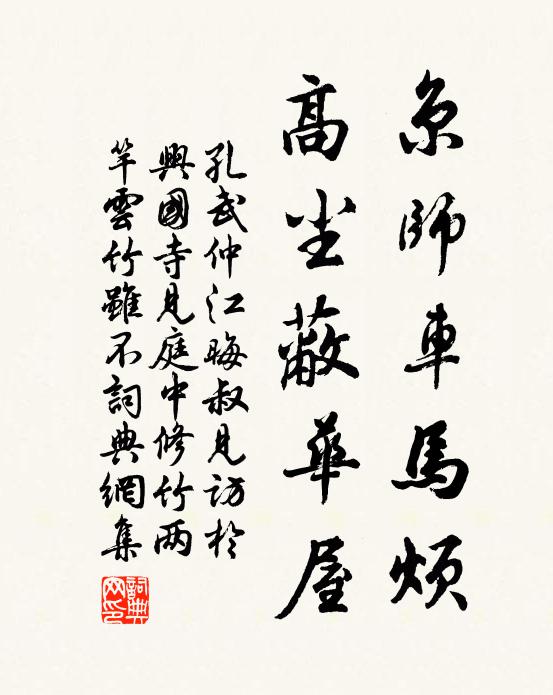 京師車馬煩
高尘蔽華屋
孔武仲江晦叔見訪於
興國寺見庭中修竹两
竿雲竹雖不詞典網集
詞典
网印